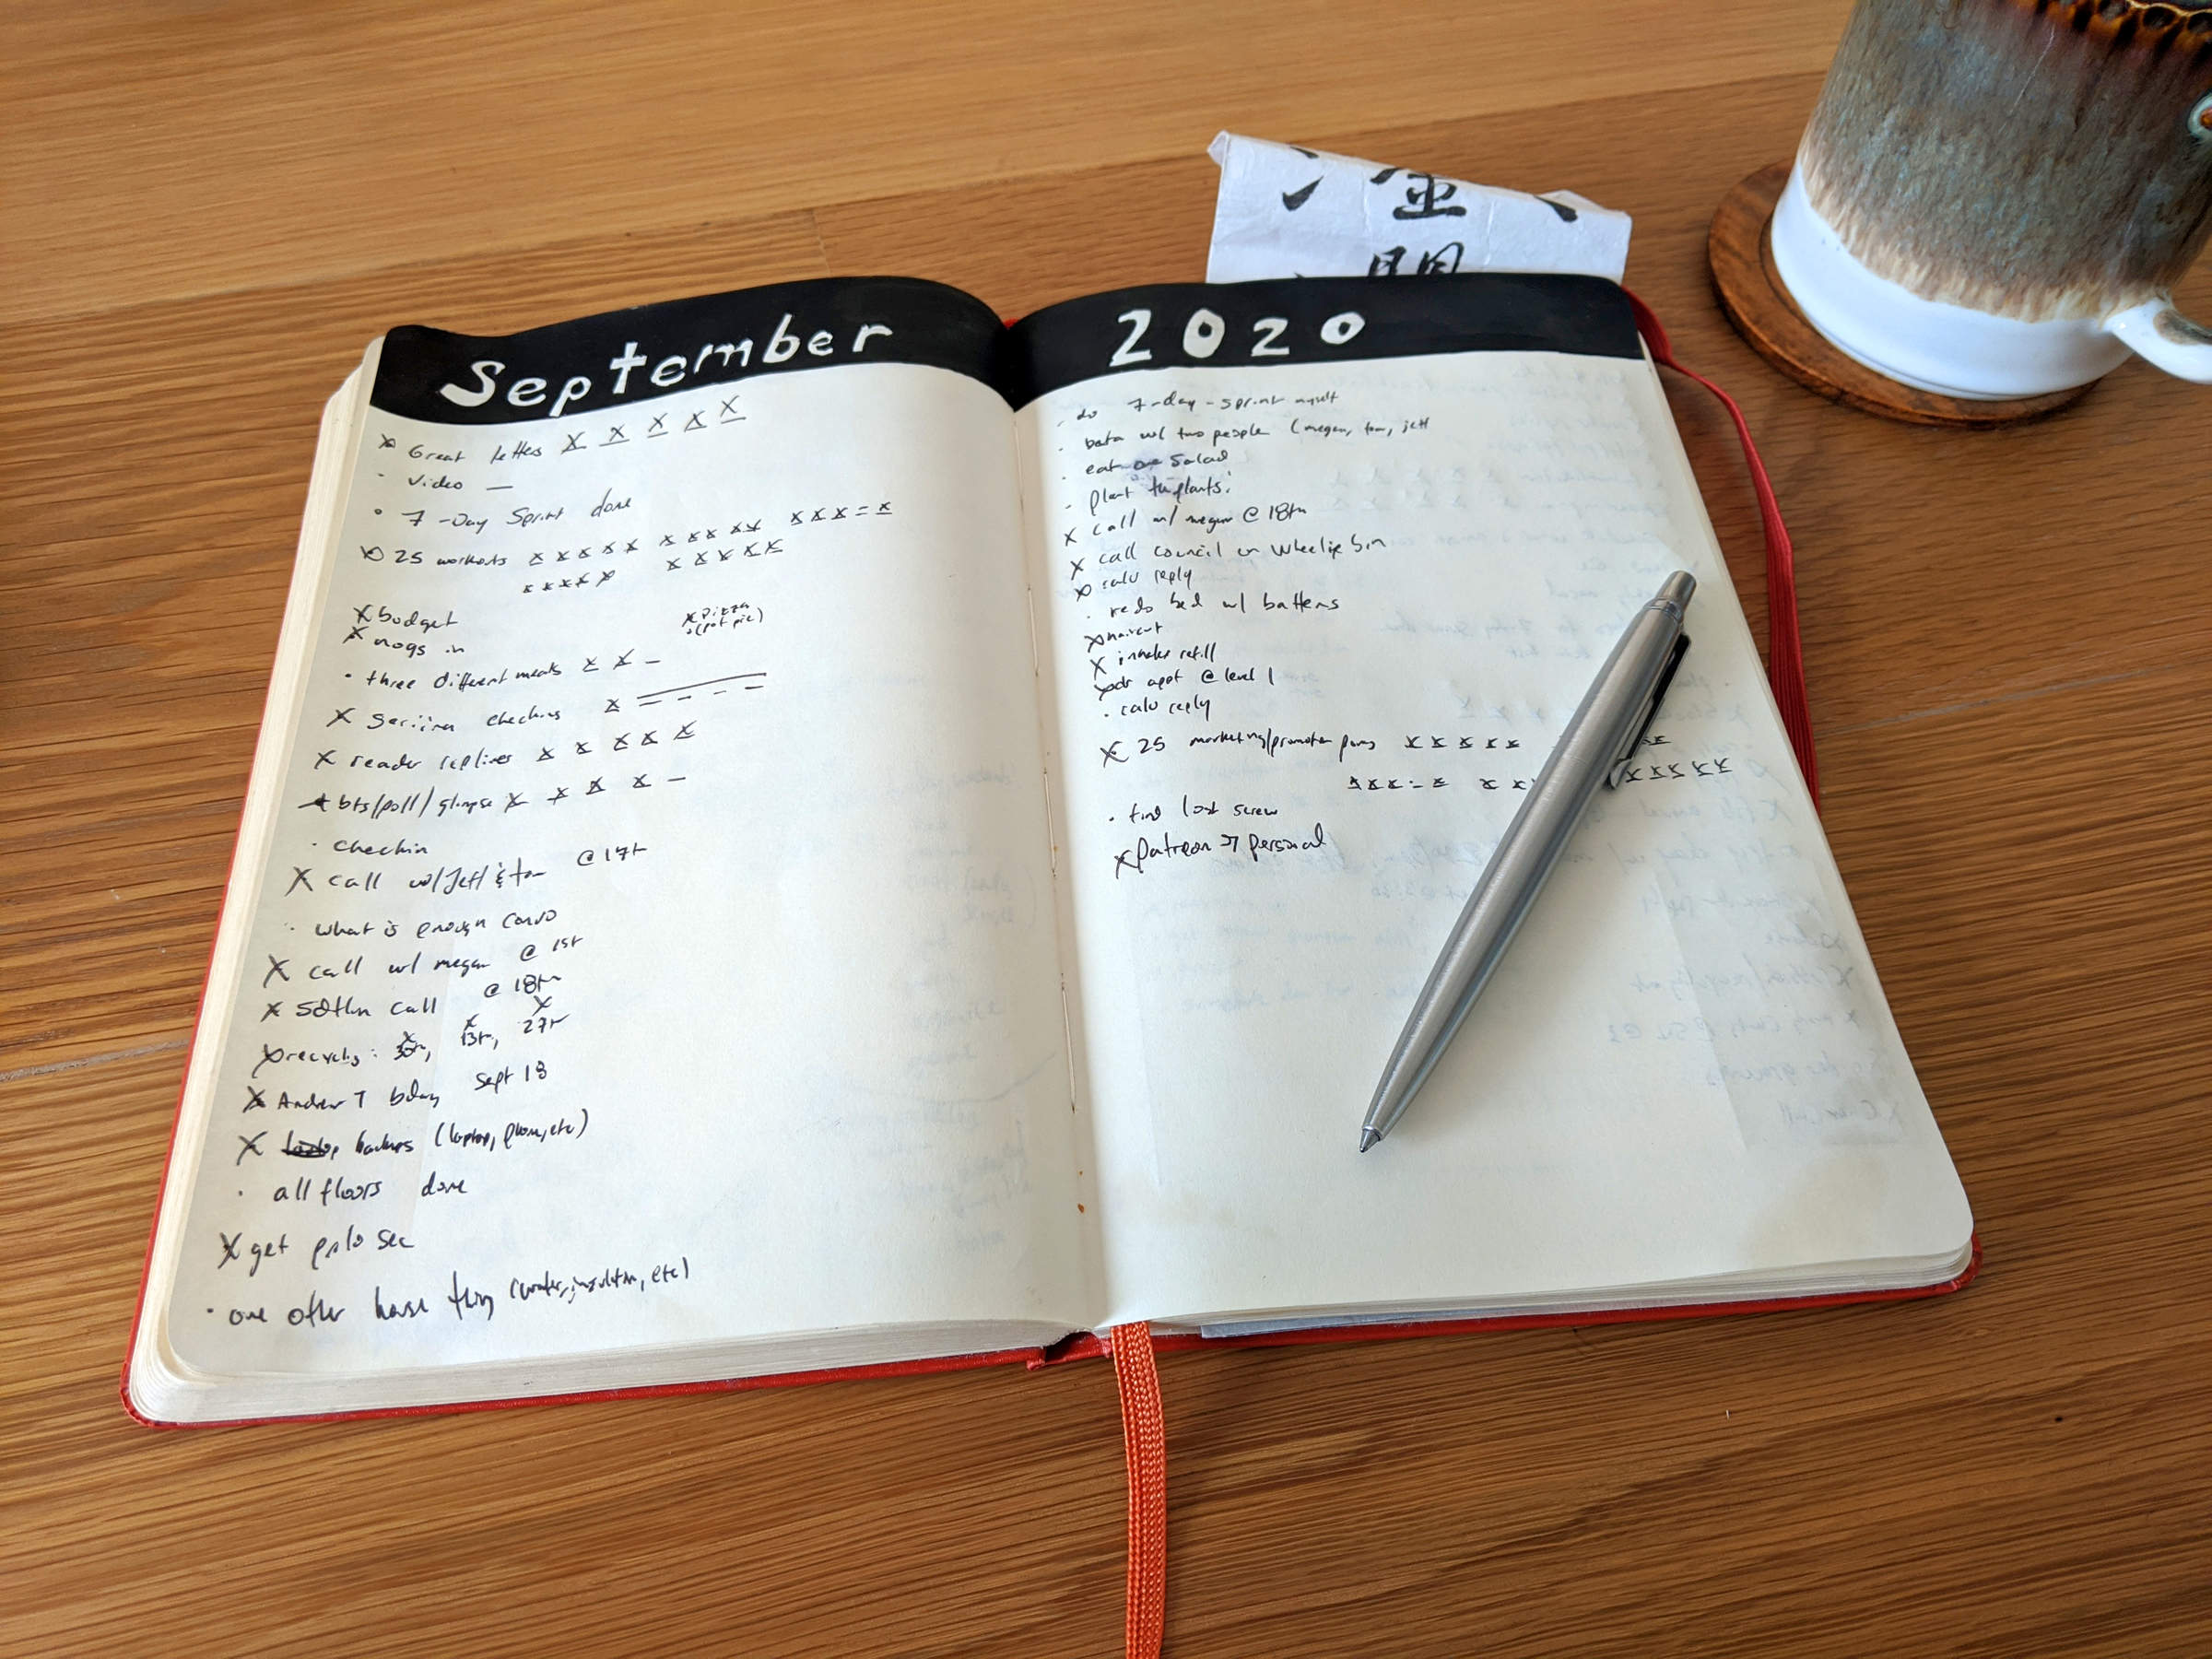 September
× Great letters × × × × ×
· Video —
· 7-Day Sprint done
× 25 workouts × × × × × × × × × × × × × = ×
× × × × × × × × × ×
× budget
× pizza
(pot pie)
× in
· three different meals × × —
× checkins ×
× reader × × × × ×
× bts/poll/glimpse × × × × —
· checkin
× call w/Jeff & tom @ 17th
· what is enough convo
× call w/ megan @ 1st
× call @ 18th
× × ×
× recyclig: 30th, 13th, 27th
× Andrew T bday sept 18
× backups (laptop, phone, etc)
· all floors done
× get
· one other house thing (water, insulation, etc)
2020
· do 7-day-sprint myself
· beta w/ two people (megan, tom, jeff
· eat one salad
· plant the plants!
× call w/ megan @ 18th
× call council on wheelie bin
× calv reply
· redo bed w/ battens
× haircut
× inhaler refill
× dr appt @ level 1
· calv reply
× 25 marketing/promotion × × × × ×
× × × = × × × × × × × ×
· find lost screw
× Patreon personal